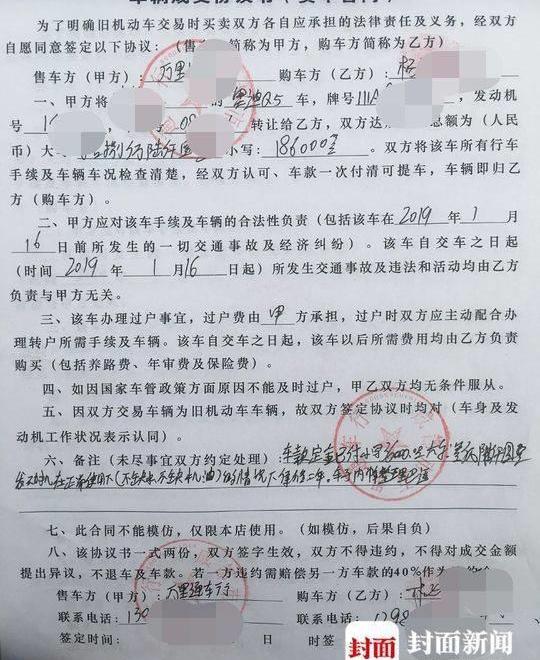 为了明确旧机动车交易时买卖双方各自应承担的法律责任及义务，经双方
自愿同意签定以下协议：（售 简称为甲方，购车方简称为乙方）
售车方（甲方）：万里 购车方（乙方）：
一、甲方将 的 奥迪Q5 车，牌号 ，发动机
号 转让给乙方，双方达 总额为（人民
币）大 捌万陆仟 小写：186000 。双方将该车所有行车
手续及车辆车况检查清楚，经双方认可、车款一次付清可提车，车辆即归乙
方（购车方）。
二、甲方应对该车手续及车辆的合法性负责（包括该车在 2019 年 1 月
16 日前所发生的一切交通事故及经济纠纷）。该车自交车之日起
（时间 2019 年 1 月 16 日起）所发生交通事故及违法和活动均由乙方
负责与甲方无关。
三、该车办理过户事宜，过户费由 甲 方承担，过户时双方应主动配合办
理转户所需手续及车辆。该车自交车之日起，该车以后所需费用均由乙方负责
购买（包括养路费、年审费及保险费）。
四、如因国家车管政策方面原因不能及时过户，甲乙双方均无条件服从。
五、因双方交易车辆为旧机动车车辆，故双方签定协议时均对（车身及发
动机工作状况表示认同）。
六、备注（未尽事宜双方约定处理）：车款定金已付
发动机在正常使用下（不缺水不缺机油）的情况下保修二年
七、此合同不能模仿，仅限本店使用。（如模仿，后果自负）
八、该协议书一式两份，双方签字生效，双方不得违约，不得对成交金额
提出异议，不退车及车款。若一方违约需赔偿另一方车款的40%作为
售车方（甲方）：万里 车行 购车方（乙方）：
联系电话：130 联系电话：
签定时间： 日 时签
封面 封面新闻